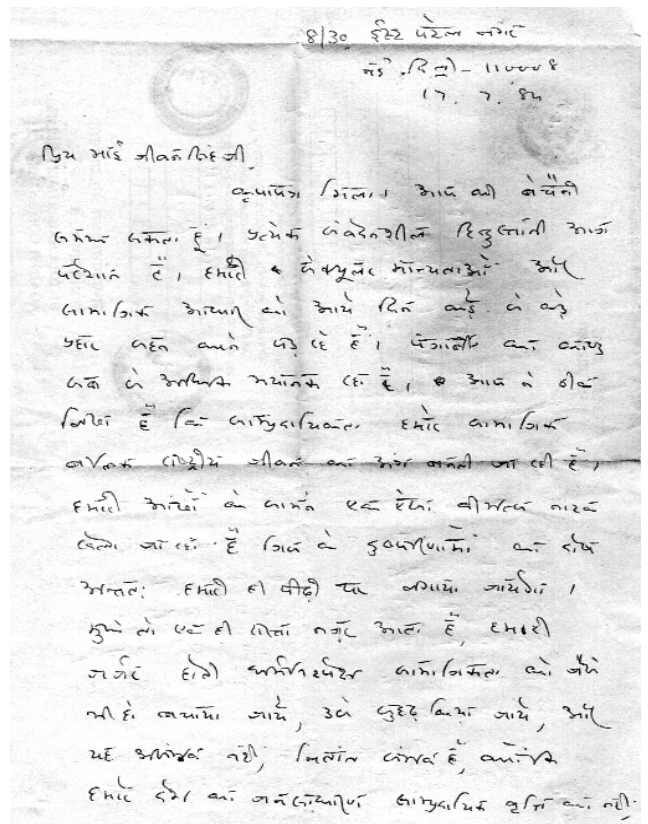 8/30 ईस्ट पटेल नगर
नई दिल्ली - 110008
17. 7. 84
प्रिय भाई जीवन सिंह जी,
कृपापत्र मिला। आप की बेचैनी
समझ सकता हूं। प्रत्येक संवेदनशील हिन्दुस्तानी आज
परेशान है। हमारी सेक्यूलर मान्यताओं और
सामाजिक आधार को आये दिन कड़े से कड़े
प्रहार सहन करने पड़ रहे हैं। का काण्ड
सब से अधिक भयानक रहा है। आप ने ठीक
लिखा है कि साम्प्रदायिकता हमारे सामाजिक
बल्कि राष्ट्रीय जीवन का अंग बनती जा रही है।
हमारी आंखों के सामने एक ऐसा वीभत्स नाटक
खेला जा रहा है जिस के दुष्परिणामों का दोष
अन्ततः हमारी ही पीढ़ी पर लगाया जायेगा।
मुझे तो एक ही रास्ता नज़र आता है, हमारी
जर्जर होती धर्मनिरपेक्ष सामाजिकता को जैसे
भी हो बचाया जाये, उसे सुदृढ़ किया जाये, और
यह असंभव नहीं, नितांत संभव है, क्योंकि
हमारे देश का जनसाधारण साम्प्रदायिक वृत्ति का नहीं